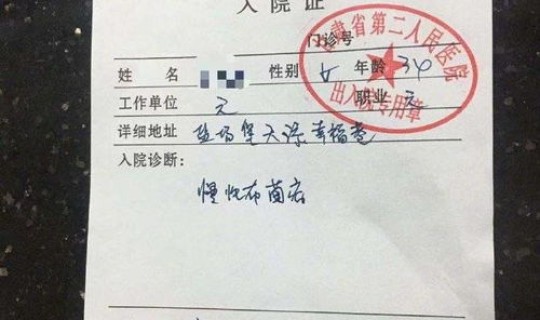 入院证
门诊号
姓 名 性别 女 年龄 34
工作单位 无 职业 无
详细地址 盐场堡大滩幸福巷
入院诊断：
慢性布菌病
甘肃省第二人民医院
出入院专用章